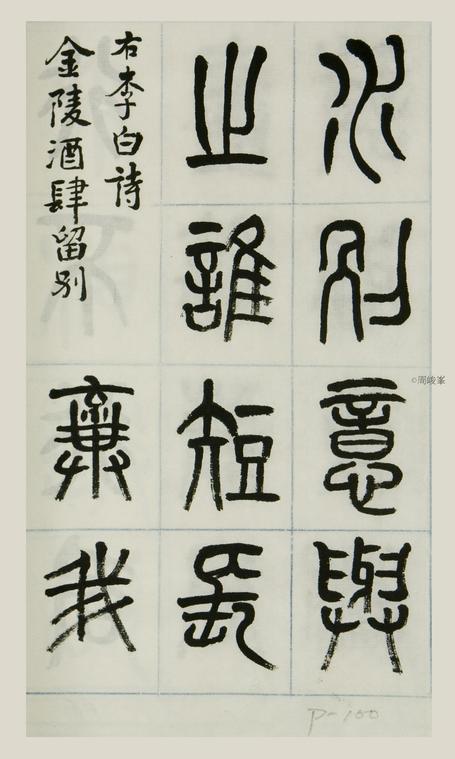 水別意與
之誰短長
右李白詩
金陵酒肆留別
棄我
©周峻峯
P-100